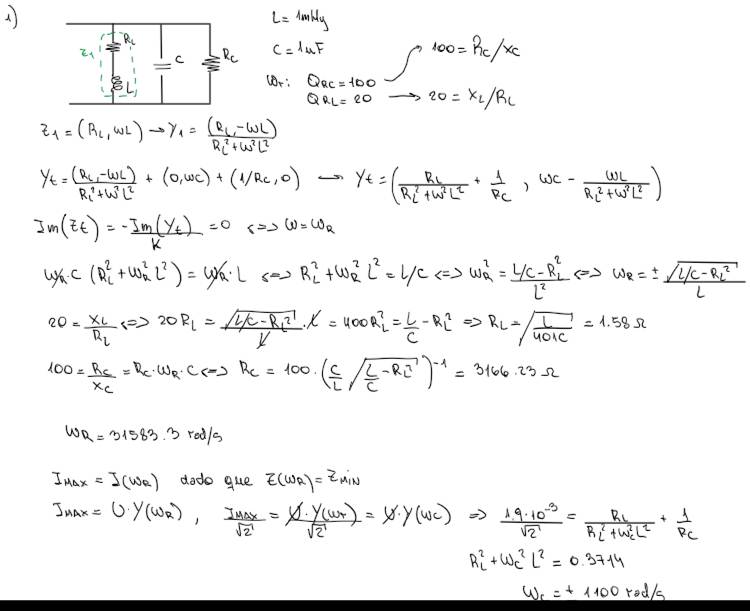 1)
R_L
Z_1
L
C
R_C
L = 1mHy
C = 1uF
ω_r: Q_RC = 100 → 100 = R_C/X_C
Q_RL = 20 → 20 = X_L/R_L
Z_1 = (R_L, ωL) → Y_1 = (R_L, -ωL) / (R_L² + ω²L²)
Y_t = (R_L, -ωL) / (R_L² + ω²L²) + (0, ωC) + (1/R_C, 0) → Y_t = (R_L / (R_L² + ω²L²) + 1/R_C , ωC - ωL / (R_L² + ω²L²))
Im(Z_t) = -Im(Y_t)/K = 0 <=> ω = ω_R
ω_R·C (R_L² + ω_R² L²) = ω_R·L <=> R_L² + ω_R² L² = L/C <=> ω_R² = (L/C - R_L²) / L² <=> ω_R = ± √(L/C - R_L²) / L
20 = X_L/R_L <=> 20 R_L = √(L/C - R_L²) / L · L = 400 R_L² = L/C - R_L² => R_L = √(L / 401C) = 1.58 Ω
100 = R_C/X_C = R_C·ω_R·C <=> R_C = 100·(C/L √(L/C - R_L²))⁻¹ = 3166.23 Ω
ω_R = 31583.3 rad/s
I_MAX = I(ω_R) dado que Z(ω_R) = Z_MIN
I_MAX = U·Y(ω_R) , I_MAX/√2 = U·Y(ω_r)/√2 = U·Y(ω_C) => 1.9·10⁻³/√2 = R_L / (R_L² + ω_C² L²) + 1/R_C
R_L² + ω_C² L² = 0.3714
ω_C = ± 1100 rad/s